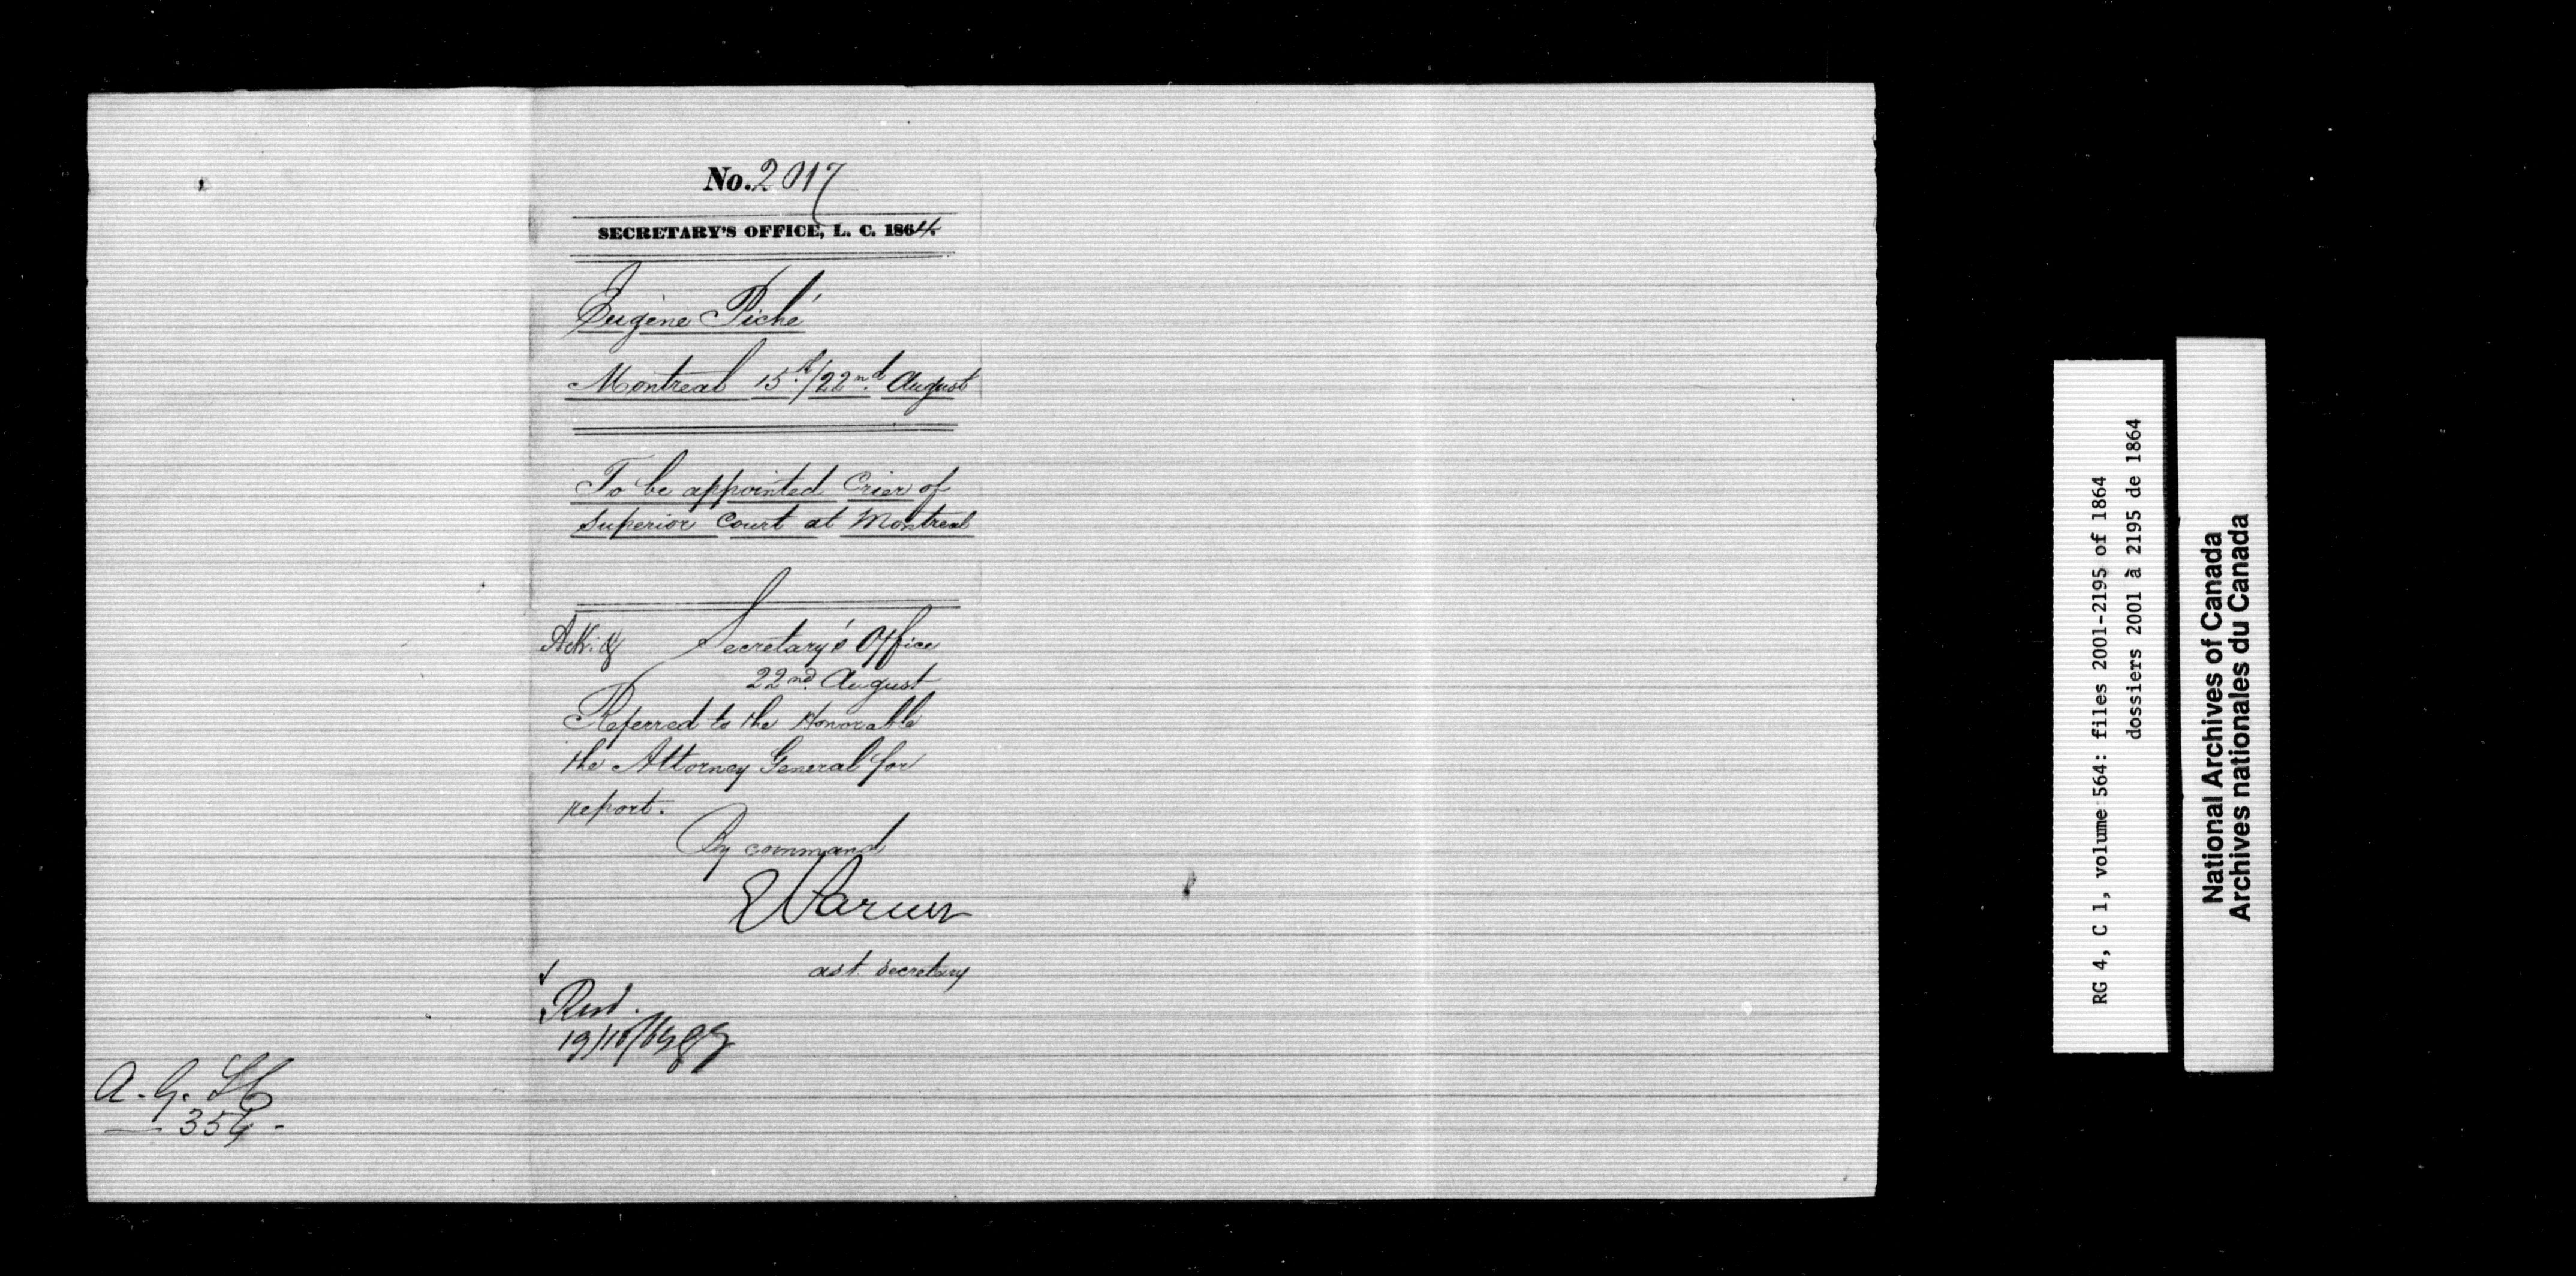 No. 2017
SECRETARY'S OFFICE, L. C. 1864.
Eugène Piché
Montreal 15th/22nd August
To be appointed Crier of
Superior Court at Montreal
Ack. &
Secretary's Office
22nd August
Referred to the Honorable
the Attorney General for
report.
By command
E Parent
ast. secretary
19/10/64
A. G. LC
354 -
RG 4, C 1, volume 564: files 2001-2195 of 1864
dossiers 2001 à 2195 de 1864
National Archives of Canada
Archives nationales du Canada